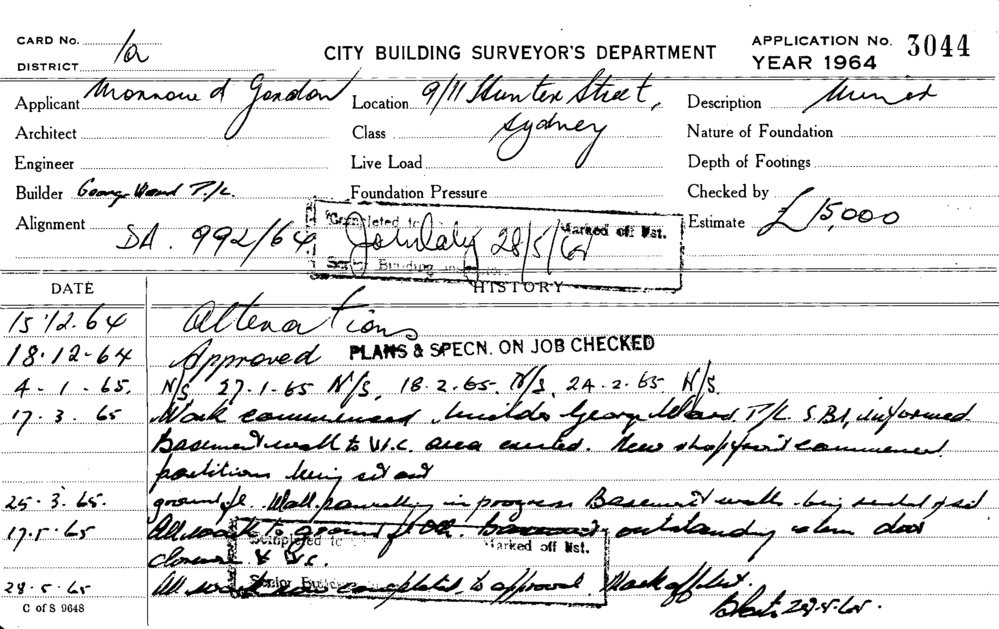 CARD No. 1a
DISTRICT
CITY BUILDING SURVEYOR'S DEPARTMENT
APPLICATION No. 3044
YEAR 1964
Applicant Gordon
Location 9/11 Hunter Street, Sydney
Description
Architect
Class
Nature of Foundation
Engineer
Live Load
Depth of Footings
Builder George Ward P/L.
Foundation Pressure
Checked by
Alignment
Estimate £15,000
DA. 992/64
Completed to
Marked off Mst.
28/5/6
Senior Building
HISTORY
DATE
15 12.64 Alterations
18.12-64 Approved PLANS & SPECN. ON JOB CHECKED
4-1-65. N/S, 27-1-65 N/S, 18.2.65. N/S, 24.2.65 N/S.
17.3.65 Work commenced builder George Ward P/L. S.B.I. informed.
Basement wall to W.C. area New shopfront
partitions being set out
25.3.65. ground fl. Wall in progress Basement walls being
17.5.65 All work to ground outstanding door
closure & W.C.
28.5.65 All work now completed to approval. Mark off list.
28-5-65.
Completed to
Marked off Mst.
Senior Building
C of S 9648